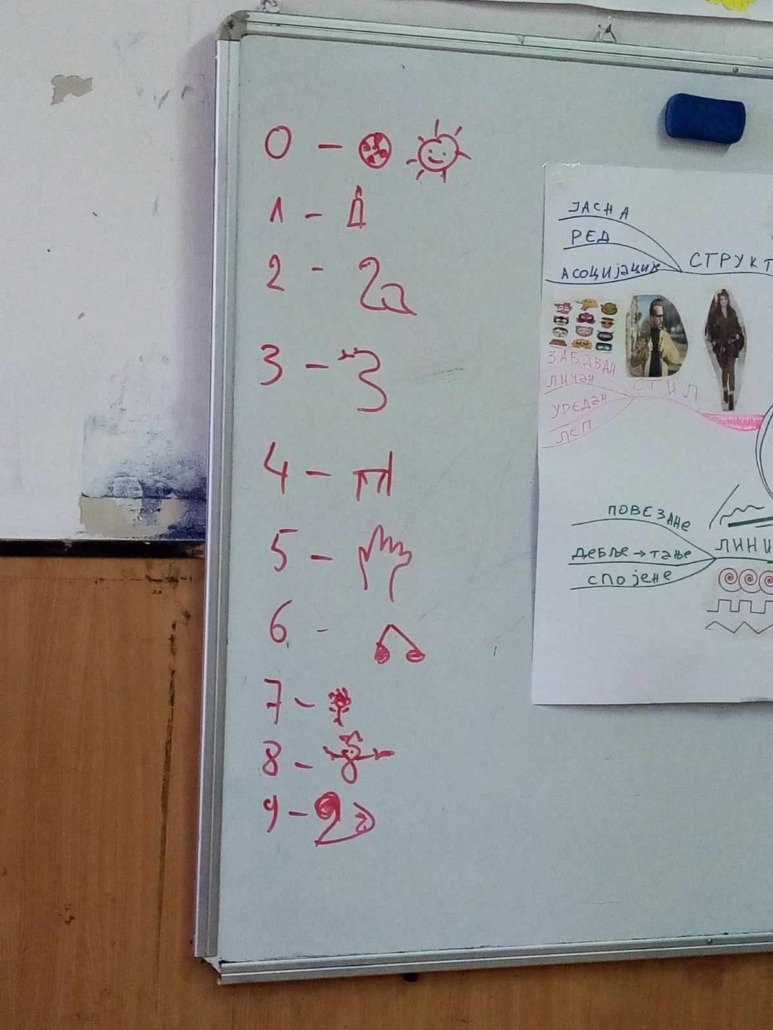 0 -
1 -
2 -
3 -
4 -
5 -
6 -
7 -
8 -
9 -
ЈАСНА
РЕД
АСОЦИЈАЦИЈЕ
СТРУКТ
ЗАБАВАН
ЛИЧАН
УРЕДАН
ЛЕП
СТИЛ
ПОВЕЗАНЕ
ДЕБЉЕ → ТАЊЕ
СПОЈЕНЕ
ЛИНИ